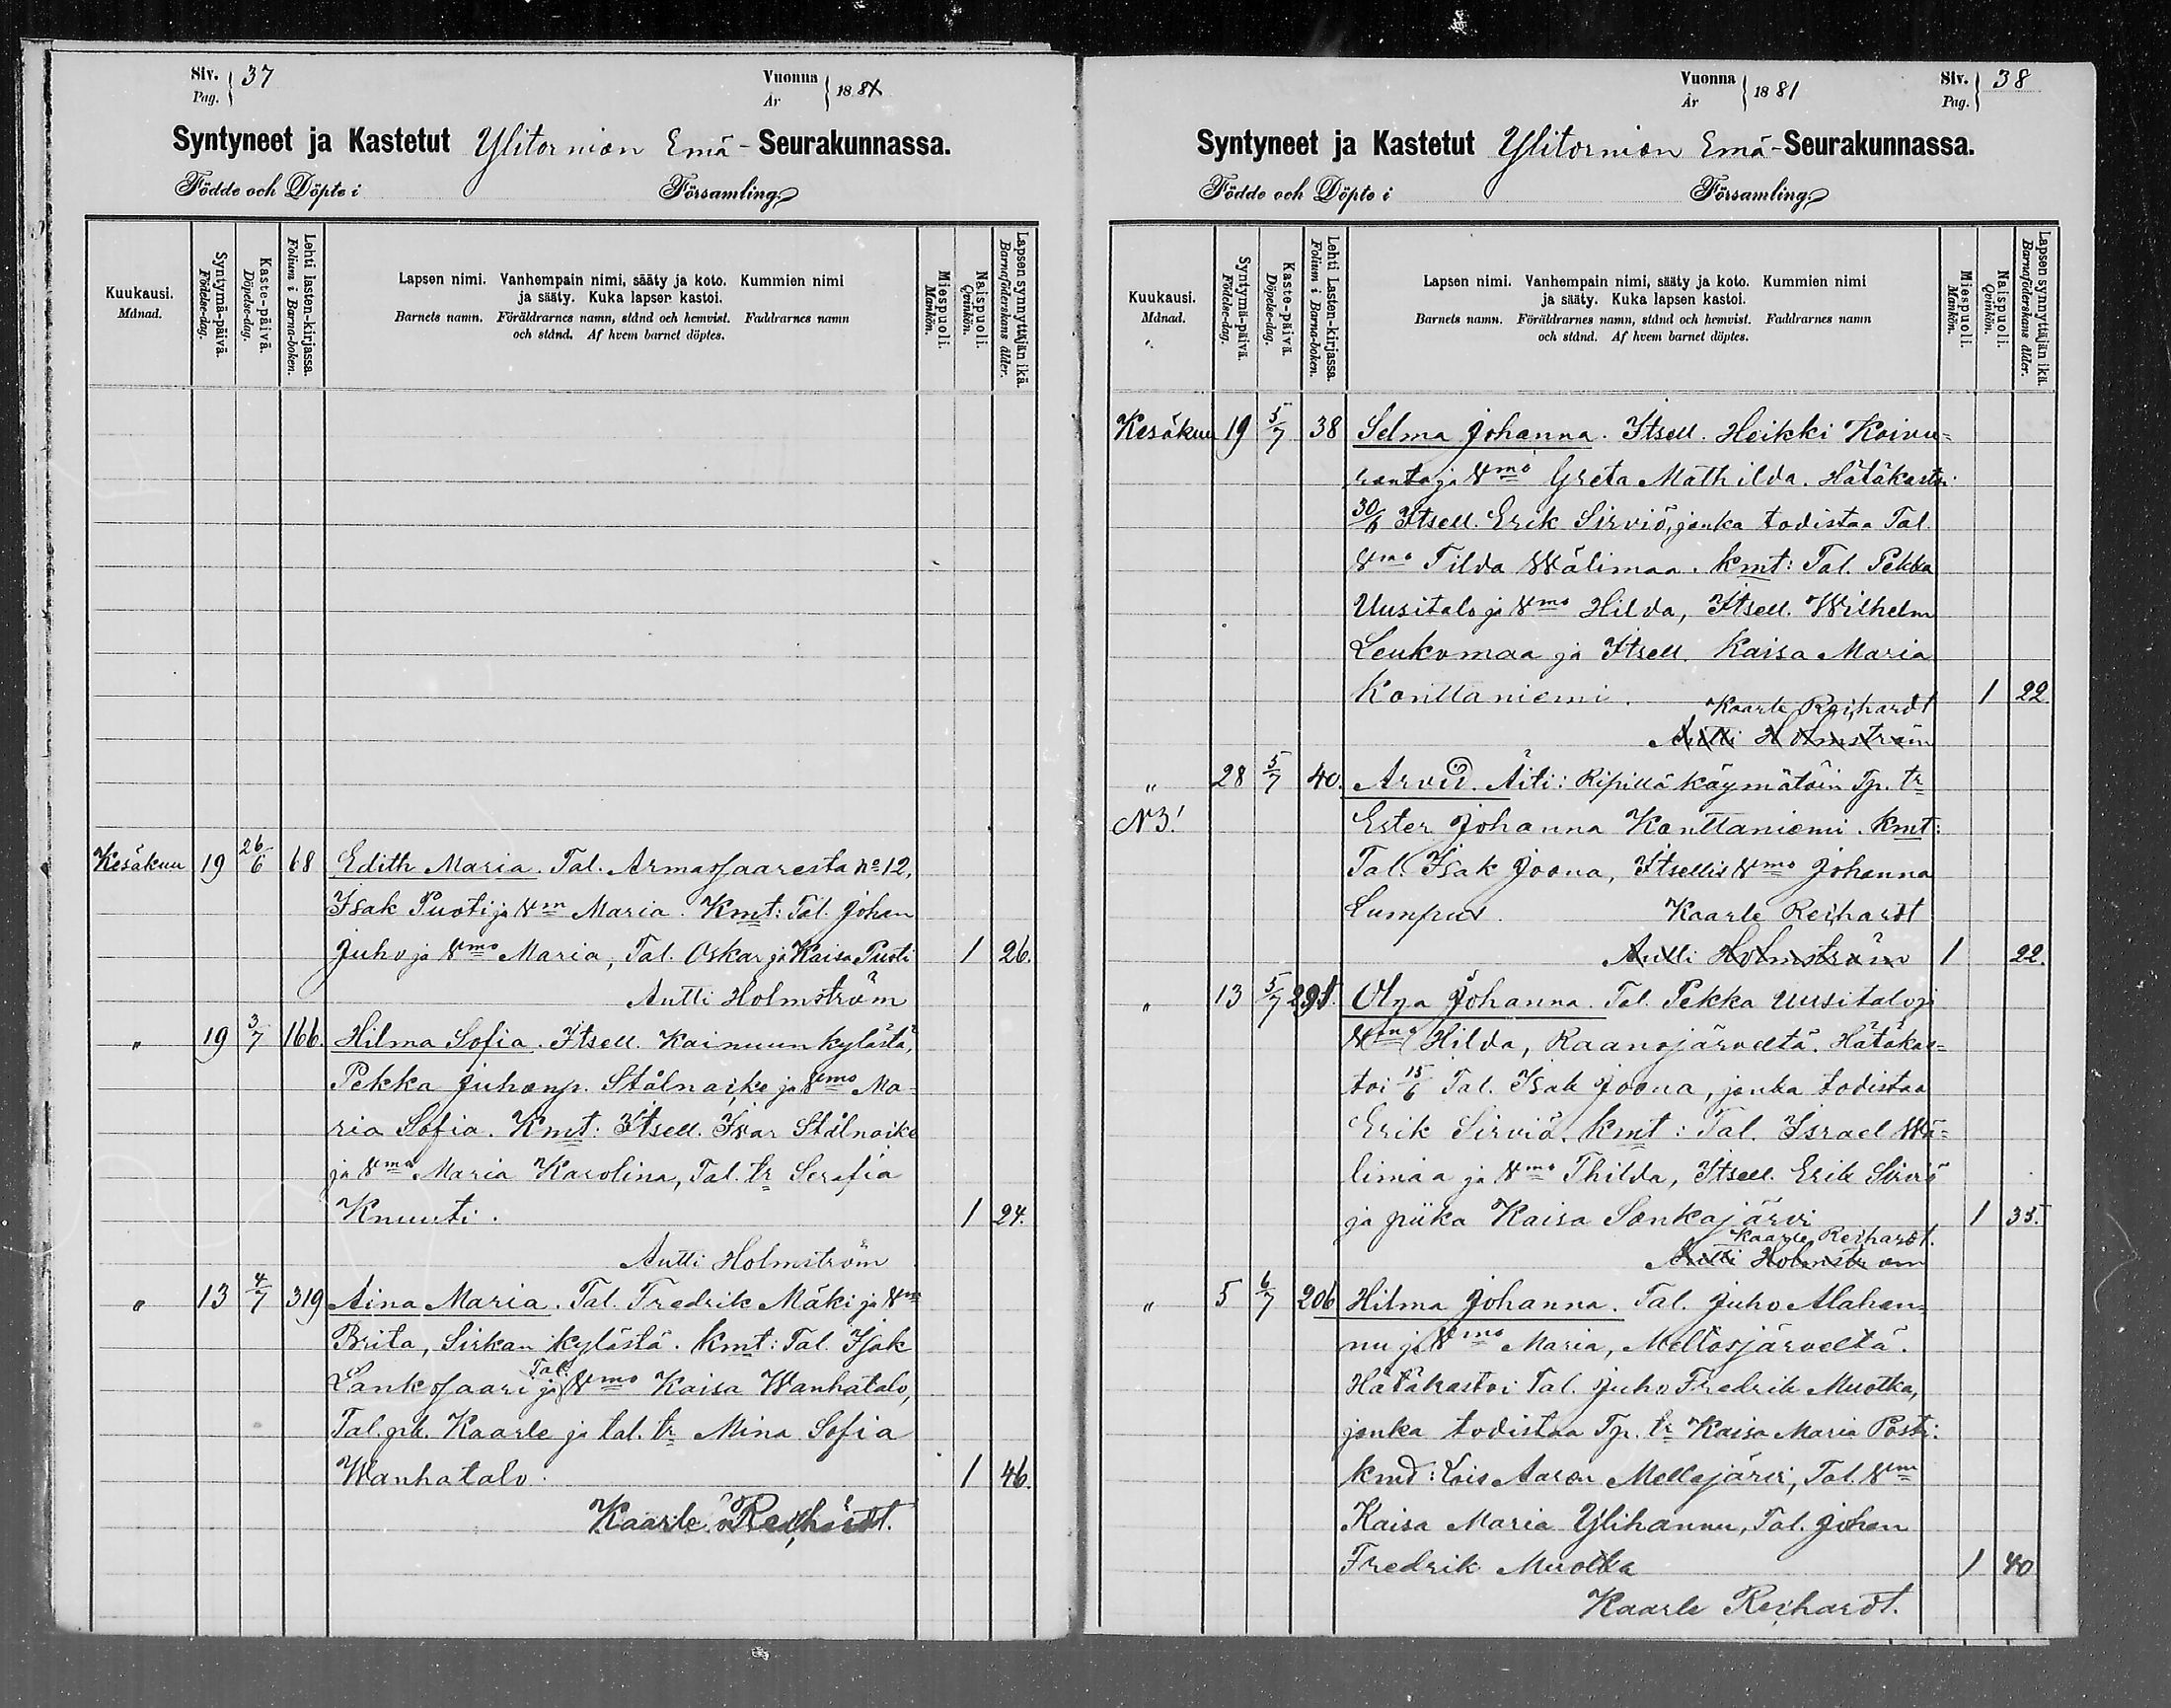 Siv. 37 Vuonna 1881
Pag. År
Syntyneet ja Kastetut Ylitornion Emä-Seurakunnassa.
Födde och Döpte i Församling.
Kuukausi.
Månad.
Syntymä-päivä.
Födelse-dag.
Kaste-päivä.
Döpelse-dag.
Lehti lasten-kirjassa.
Folium i Barna-boken.
Lapsen nimi. Vanhempain nimi, sääty ja koto. Kummien nimi
ja sääty. Kuka lapsen kastoi.
Barnets namn. Föräldrarnes namn, stånd och hemvist. Faddrarnes namn
och stånd. Af hvem barnet döptes.
Miespuoli.
Mankön.
Naispuoli.
Qvinkön.
Lapsen synnyttäjän ikä.
Barnaföderskans ålder.
Kesäkuu 19 26/6 68 Edith Maria. Tal. Armassaaresta No 12,
Isak Puoti ja Vm Maria. Kmt: Tal. Johan
Juho ja Vmo Maria, Tal. Oskar ja Kaisa Puoti 1 26.
Antti Holmström
" 19 3/7 166. Hilma Sofia. Itsell. Kainuun kylästä,
Pekka Juhanp. Stålnacke ja Vmo Ma-
ria Sofia. Kmt: Itsell. Ivar Stålnacke
ja Vmo Maria Karolina, Tal. tr Serafia
Knuuti. 1 24.
Antti Holmström
" 13 4/7 319 Aina Maria. Tal. Fredrik Mäki ja Vm
Brita, Sirkan kylästä. Kmt: Tal. Isak
Lankosaari ja Tal. Vmo Kaisa Wanhatalo,
Tal. pk. Kaarle ja tal. tr Mina Sofia
Wanhatalo. 1 46.
Kaarle Reihardt.
Vuonna 1881 Siv. 38
År Pag.
Syntyneet ja Kastetut Ylitornion Emä-Seurakunnassa.
Födde och Döpte i Församling.
Kuukausi.
Månad.
Syntymä-päivä.
Födelse-dag.
Kaste-päivä.
Döpelse-dag.
Lehti Lasten-kirjassa.
Folium i Barna-boken.
Lapsen nimi. Vanhempain nimi, sääty ja koto. Kummien nimi
ja sääty. Kuka lapsen kastoi.
Barnets namn. Föräldrarnes namn, stånd och hemvist. Faddrarnes namn
och stånd. Af hvem barnet döptes.
Miespuoli.
Mankön.
Naispuoli.
Qvinkön.
Lapsen synnyttäjän ikä.
Barnaföderskans ålder.
Kesäkuu 19 5/7 38 Selma Johanna. Itsell. Heikki Koivu=
ranta ja Vmo Greta Mathilda. Hätäkastoi
30/6 Itsell. Erik Sirviö, jonka todistaa Tal.
Vmo Tilda Wälimaa. Kmt: Tal. Pekka
Uusitalo ja Vmo Hilda, Itsell. Wilhelm
Leukomaa ja Itsell. Kaisa Maria
Konttaniemi. 1 22
Kaarle Reihardt
Antti Holmström
" 28 5/7 40. Arvid. Äiti: Ripillä käymätöin Tp. tr
N3! Ester Johanna Konttaniemi. Kmt:
Tal. Isak Joona, Itsellis Vmo Johanna
Lumpus. Kaarle Reihardt
Antti Holmström 1 22.
" 13 5/7 295. Olga Johanna. Tal. Pekka Uusitalo ja
Vmo Hilda, Raanojärveltä. Hätäkas=
toi 15/6 Tal. Isak Joona, jonka todistaa
Erik Sirviö. Kmt: Tal. Israel Wä=
limaa ja Vmo Thilda, Itsell. Erik Sirviö
ja piika Kaisa Sonkajärvi 1 35.
Kaarle Reihardt.
Antti Holmström
" 5 6/7 206 Hilma Johanna. Tal. Juho Alahan=
nu ja Vmo Maria, Meltosjärveltä.
Hätäkastoi Tal. Juho Fredrik Muotka,
jonka todistaa Tp. tr Kaisa Maria Posti:
Kmd: Lois Aaron Mellajärvi, Tal. Vm
Kaisa Maria Ylihannu, Tal. Johan
Fredrik Muotka 1 40
Kaarle Reihardt.